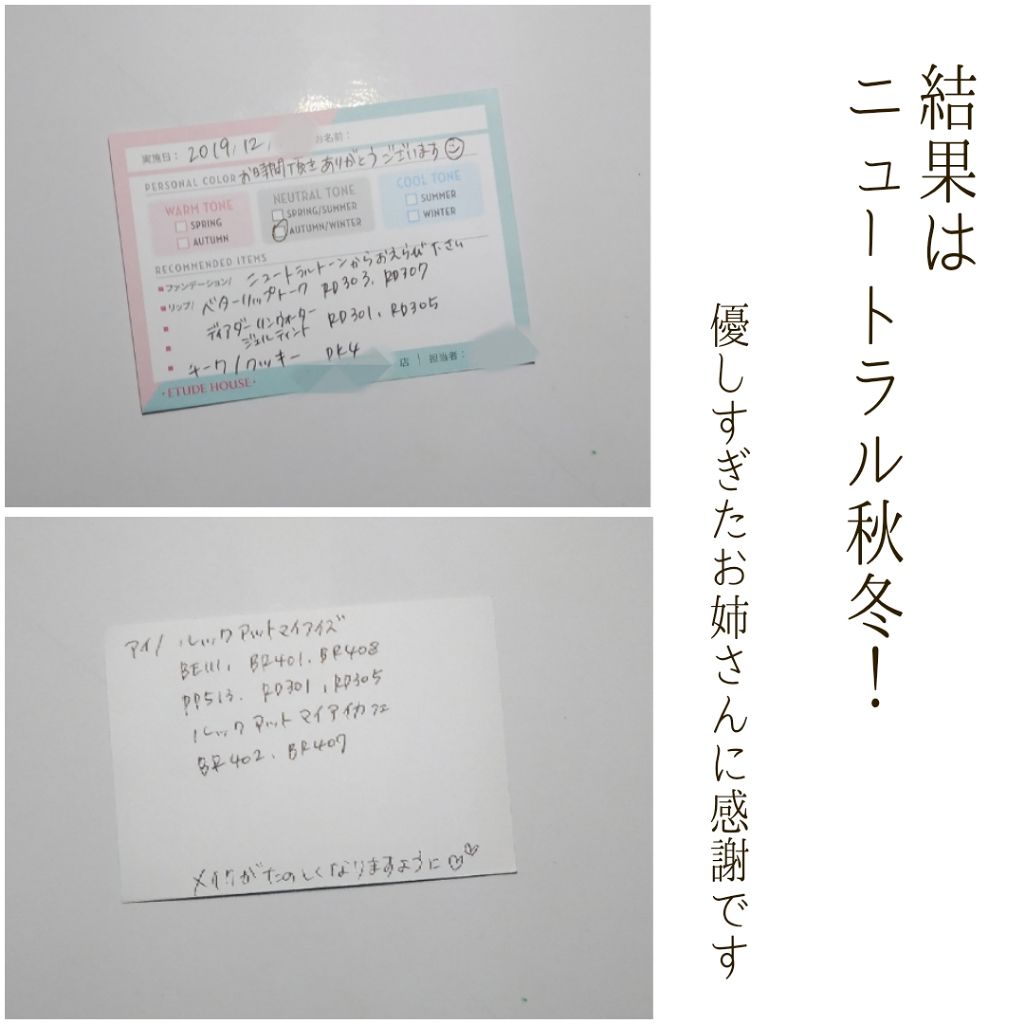 結果は
ニュートラル秋冬！
優しすぎたお姉さんに感謝です
実施日： 2019, 12, お名前：
PERSONAL COLOR お時間頂きありがとうございます
WARM TONE
SPRING
AUTUMN
NEUTRAL TONE
SPRING/SUMMER
AUTUMN/WINTER
COOL TONE
SUMMER
WINTER
RECOMMENDED ITEMS
ファンデーション/ ニュートラルトーンからおえらび下さい
リップ/ ベターリップトーク RD303, RD307
ディアダーリンウォーター
ジェルティント RD301, RD305
チーク/クッキー PK4
店 | 担当者：
ETUDE HOUSE
アイ/ ルックアットマイアイズ
BE111, BR401, BR408
PP513, RD301, RD305
ルックアットマイアイカフェ
BR402, BR407
メイクがたのしくなりますように♡♡